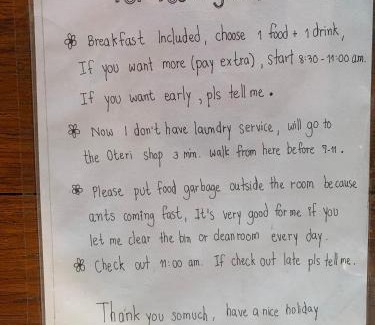 Breakfast Included, choose 1 food + 1 drink,
If you want more (pay extra), start 8:30-11:00 am.
If you want early, pls tell me.
Now I don't have laundry service, will go to
the Oteri shop 3 min. walk from here before 7-11.
Please put food garbage outside the room because
ants coming fast, It's very good for me if you
let me clear the bin or clean room every day.
Check out 11:00 am. If check out late pls tell me.
Thank you somuch, have a nice holiday